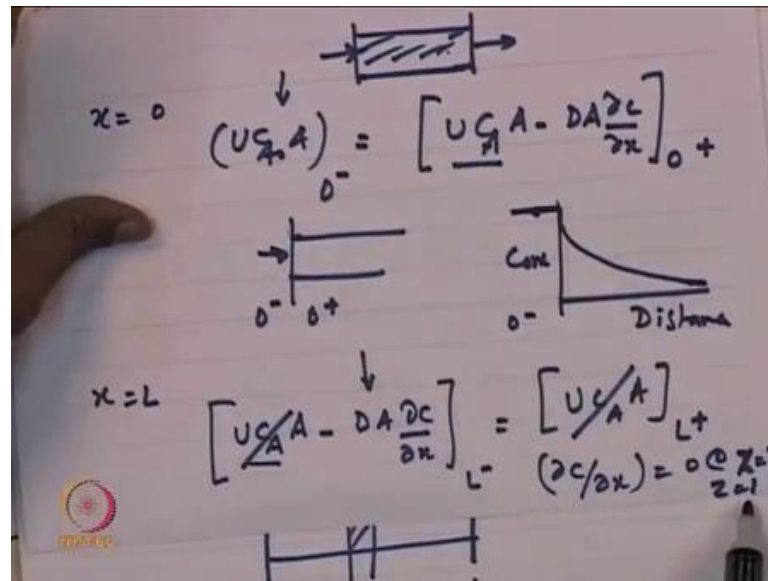 x = 0 (UC_A₀ A)_0⁻ = [UC_A A - DA ∂c/∂x]_0⁺
0⁻ 0⁺
Conc
0⁻ Distance
x = L [UC_A A - DA ∂c/∂x]_L⁻ = [UC_A A]_L⁺
(∂c/∂x) = 0 @ x=
z=1
NPTEL